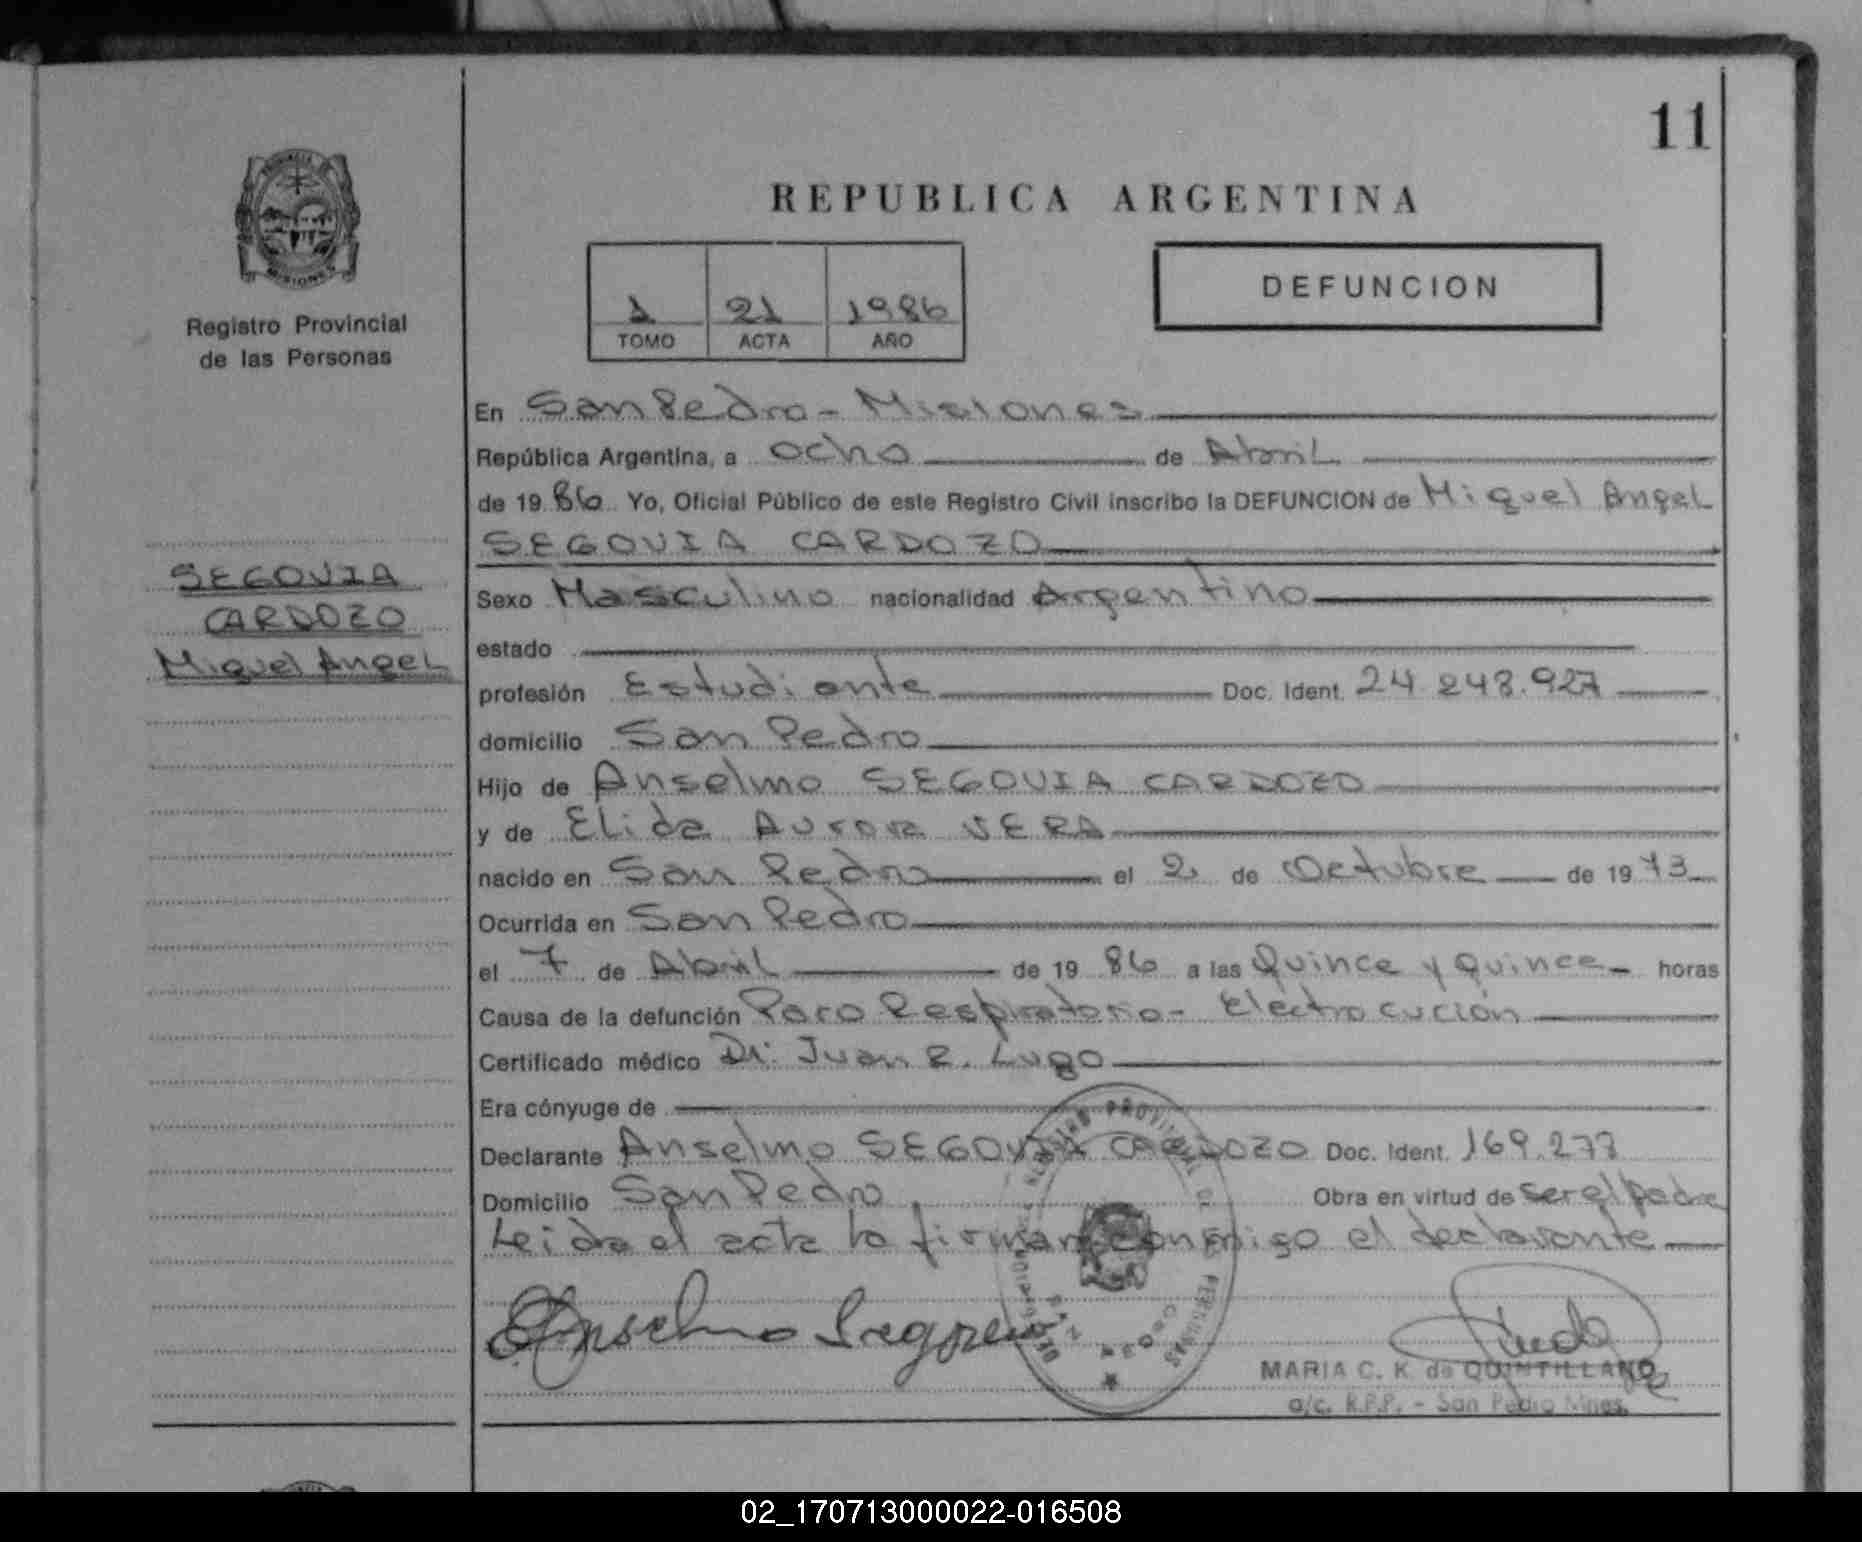 11
REPUBLICA ARGENTINA
PROVINCIA
MISIONES
Registro Provincial
de las Personas
1 21 1986
TOMO ACTA AÑO
DEFUNCION
En San Pedro - Misiones
República Argentina, a ocho de Abril
de 1986 Yo, Oficial Público de este Registro Civil inscribo la DEFUNCION de Miguel Angel
SEGOVIA CARDOZO
SEGOVIA
CARDOZO
Miguel Angel
Sexo Masculino nacionalidad Argentino
estado
profesión Estudiante Doc. Ident. 24.248.927
domicilio San Pedro
Hijo de Anselmo SEGOVIA CARDOZO
y de Elida Aurora VERA
nacido en San Pedro el 2 de Octubre de 1973
Ocurrida en San Pedro
el 7 de Abril de 1986 a las Quince y Quince horas
Causa de la defunción Paro Respiratorio - Electrocución
Certificado médico Dr. Juan R. Lugo
Era cónyuge de
Declarante Anselmo SEGOVIA CARDOZO Doc. Ident. 169.277
Domicilio San Pedro Obra en virtud de ser el padre
Leida el acta la firman conmigo el declarante
Anselmo
MARIA C. K. de QUINTILLANO
a/c. R.P.P. - San Pedro Mnes.
02_170713000022-016508